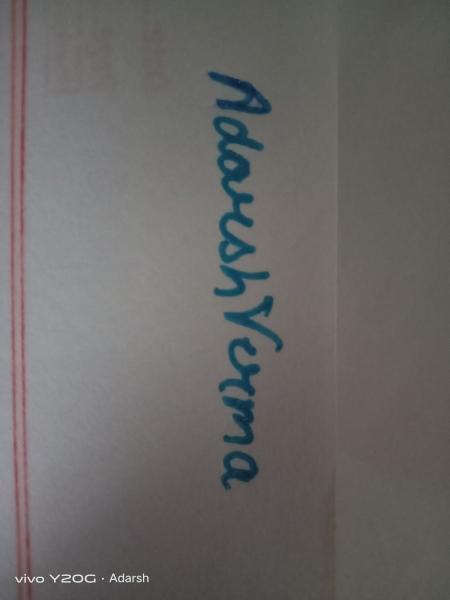 Adarsh Verma
vivo Y20G · Adarsh